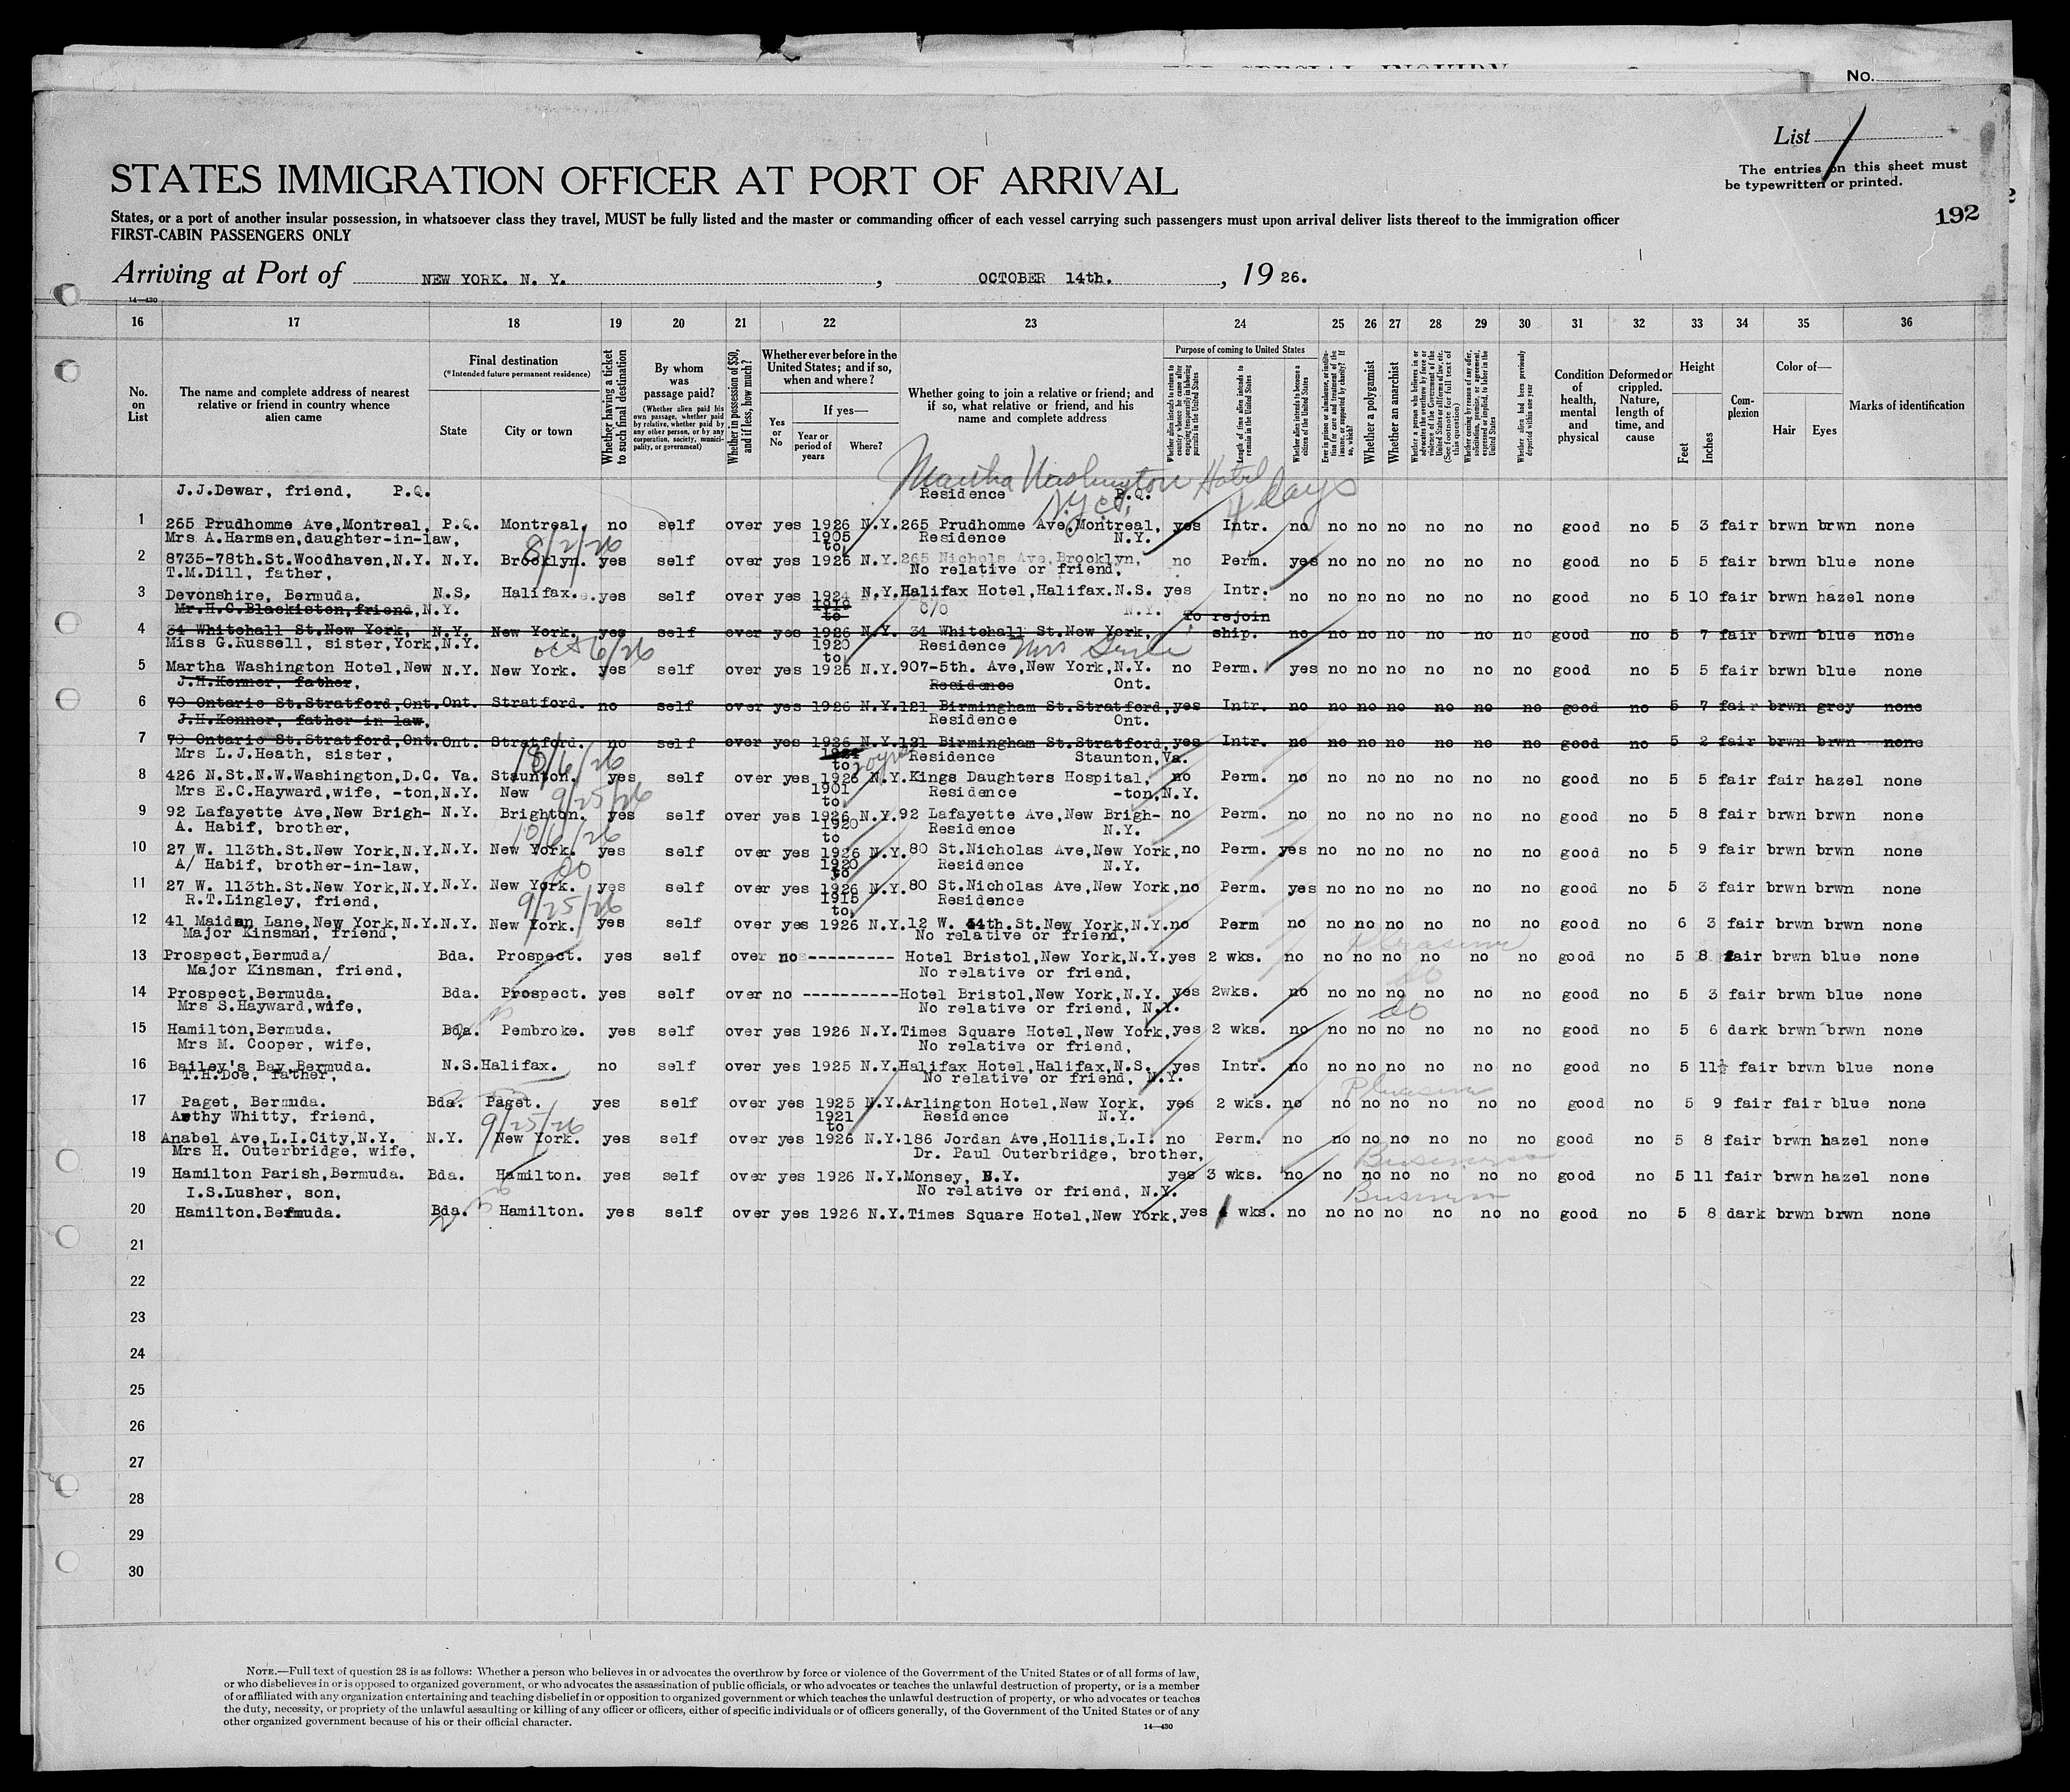 No.
List /
The entries on this sheet must
be typewritten or printed.
192
STATES IMMIGRATION OFFICER AT PORT OF ARRIVAL
States, or a port of another insular possession, in whatsoever class they travel, MUST be fully listed and the master or commanding officer of each vessel carrying such passengers must upon arrival deliver lists thereof to the immigration officer
FIRST-CABIN PASSENGERS ONLY
Arriving at Port of NEW YORK. N. Y. , OCTOBER 14th. , 19 26.
14—430
16 17 18 19 20 21 22 23 24 25 26 27 28 29 30 31 32 33 34 35 36
No. on List
The name and complete address of nearest relative or friend in country whence alien came
Final destination
(*Intended future permanent residence)
State
City or town
Whether having a ticket to such final destination
By whom was passage paid?
(Whether alien paid his own passage, whether paid by relative, whether paid by any other person, or by any corporation, society, municipality, or government)
Whether in possession of $50, and if less, how much?
Whether ever before in the United States; and if so, when and where?
Yes or No
If yes—
Year or period of years
Where?
Whether going to join a relative or friend; and if so, what relative or friend, and his name and complete address
Purpose of coming to United States
Whether alien intends to return to country whence he came after engaging temporarily in laboring pursuits in the United States
Length of time alien intends to remain in the United States
Whether alien intends to become a citizen of the United States
Ever in prison or almshouse, or institution for care and treatment of the insane, or supported by charity? If so, which?
Whether a polygamist
Whether an anarchist
Whether a person who believes in or advocates the overthrow by force or violence of the Government of the United States or all forms of law, etc. (See footnote for full text of this question)
Whether coming by reason of any offer, solicitation, promise, or agreement, expressed or implied, to labor in the United States
Whether alien had been previously deported within one year
Condition of health, mental and physical
Deformed or crippled. Nature, length of time, and cause
Height
Feet
Inches
Complexion
Color of—
Hair
Eyes
Marks of identification
Martha Washington Hotel
N.Y.C. 4 days
J.J.Dewar, friend, P.Q. Residence P.Q.
1 265 Prudhomme Ave,Montreal, P.Q. Montreal. no self over yes 1926 N.Y. 265 Prudhomme Ave,Montreal, yes Intr. no no no no no no no good no 5 3 fair brwn brwn none
Mrs A.Harmsen,daughter-in-law, 8/2/26 1905 to Residence N.Y.
2 8735-78th.St.Woodhaven,N.Y. N.Y. Brooklyn. yes self over yes 1926 N.Y. 265 Nichols Ave,Brooklyn, no Perm. yes no no no no no no good no 5 5 fair brwn blue none
T.M.Dill, father, No relative or friend,
3 Devonshire, Bermuda. N.S. Halifax. yes self over yes 1924 N.Y. Halifax Hotel,Halifax.N.S. yes Intr. no no no no no no no good no 5 10 fair brwn hazel none
Mr.H.C.Blackiston,friend,N.Y. 1919 to C/O N.Y. To rejoin
4 34 Whitehall St.New York, N.Y. New York. yes self over yes 1926 N.Y. 34 Whitehall St.New York, ship. no no no no no no no good no 5 7 fair brwn blue none
Miss G.Russell, sister,York,N.Y. Oct 6/26 1920 to Residence
5 Martha Washington Hotel,New N.Y. New York. yes self over yes 1926 N.Y. 907-5th. Ave,New York,N.Y. no Perm. yes no no no no no no good no 5 5 fair brwn blue none
J.H.Kenner, father, Residence Ont.
6 70 Ontario St.Stratford,Ont. Ont. Stratford. no self over yes 1926 N.Y. 121 Birmingham St.Stratford, yes Intr. no no no no no no no good no 5 7 fair brwn grey none
J.H.Kenner, father-in-law, Residence Ont.
7 70 Ontario St.Stratford,Ont. Ont. Stratford. no self over yes 1926 N.Y. 121 Birmingham St.Stratford, yes Intr. no no no no no no no good no 5 2 fair brwn brwn none
Mrs L.J.Heath, sister, 10/6/26 to 20 yrs Residence Staunton,Va.
8 426 N.St.N.W.Washington,D.C. Va. Staunton. yes self over yes 1926 N.Y. Kings Daughters Hospital, no Perm. no no no no no no no good no 5 5 fair fair hazel none
Mrs E.C.Hayward,wife, -ton,N.Y. New 9/25/26 1901 to Residence -ton,N.Y.
9 92 Lafayette Ave,New Brigh- N.Y. Brighton. yes self over yes 1926 N.Y. 92 Lafayette Ave,New Brigh- no Perm. no no no no no no no good no 5 8 fair brwn brwn none
A. Habif, brother, 10/6/26 1920 to Residence N.Y.
10 27 W. 113th.St.New York,N.Y. N.Y. New York. yes self over yes 1926 N.Y. 80 St.Nicholas Ave,New York, no Perm. yes no no no no no no good no 5 9 fair brwn brwn none
A/ Habif, brother-in-law, do 1920 to Residence N.Y.
11 27 W. 113th.St.New York,N.Y. N.Y. New York. yes self over yes 1926 N.Y. 80 St.Nicholas Ave,New York, no Perm. yes no no no no no no good no 5 3 fair brwn brwn none
R.T.Lingley, friend, 9/25/26 1915 to Residence
12 41 Maiden Lane,New York,N.Y. N.Y. New York. yes self over yes 1926 N.Y. 12 W. 54th.St.New York,N.Y. no Perm no no no no no no no good no 6 3 fair brwn brwn none
Major Kinsman, friend, No relative or friend, Pleasure
13 Prospect,Bermuda/ Bda. Prospect. yes self over no ---------- Hotel Bristol,New York,N.Y. yes 2 wks. no no no no no no no good no 5 8 fair brwn blue none
Major Kinsman, friend, No relative or friend, do
14 Prospect,Bermuda. Bda. Prospect. yes self over no ---------- Hotel Bristol,New York,N.Y. yes 2wks. no no no no no no no good no 5 3 fair brwn blue none
Mrs S.Hayward,wife, No relative or friend, N.Y. do
15 Hamilton,Bermuda. Bda. Pembroke. yes self over yes 1926 N.Y. Times Square Hotel,New York, yes 2 wks. no no no no no no no good no 5 6 dark brwn brwn none
Mrs M. Cooper, wife, No relative or friend,
16 Bailey's Bay,Bermuda. N.S. Halifax. no self over yes 1925 N.Y. Halifax Hotel,Halifax,N.S. yes Intr. no no no no no no no good no 5 11½ fair brwn blue none
T.H.Doe, father, No relative or friend, N.Y. Pleasure
17 Paget, Bermuda. Bda. Paget. yes self over yes 1925 N.Y. Arlington Hotel,New York, yes 2 wks. no no no no no no no good no 5 9 fair fair blue none
Arthy Whitty, friend, 9/25/26 1921 to Residence N.Y.
18 Anabel Ave,L.I.City,N.Y. N.Y. New York. yes self over yes 1926 N.Y. 186 Jordan Ave,Hollis,L.I. no Perm. no no no no no no no good no 5 8 fair brwn hazel none
Mrs H. Outerbridge, wife, Dr. Paul Outerbridge, brother, Business
19 Hamilton Parish,Bermuda. Bda. Hamilton. yes self over yes 1926 N.Y. Monsey, N.Y. yes 3 wks. no no no no no no no good no 5 11 fair brwn hazel none
I.S.Lusher, son, No relative or friend, N.Y. Business
20 Hamilton.Bermuda. Bda. Hamilton. yes self over yes 1926 N.Y. Times Square Hotel,New York, yes wks. no no no no no no no good no 5 8 dark brwn brwn none
21
22
23
24
25
26
27
28
29
30
NOTE.—Full text of question 28 is as follows: Whether a person who believes in or advocates the overthrow by force or violence of the Government of the United States or of all forms of law,
or who disbelieves in or is opposed to organized government, or who advocates the assassination of public officials, or who advocates or teaches the unlawful destruction of property, or is a member
of or affiliated with any organization entertaining and teaching disbelief in or opposition to organized government or which teaches the unlawful destruction of property, or who advocates or teaches
the duty, necessity, or propriety of the unlawful assaulting or killing of any officer or officers, either of specific individuals or of officers generally, of the Government of the United States or of any
other organized government because of his or their official character.
14—430